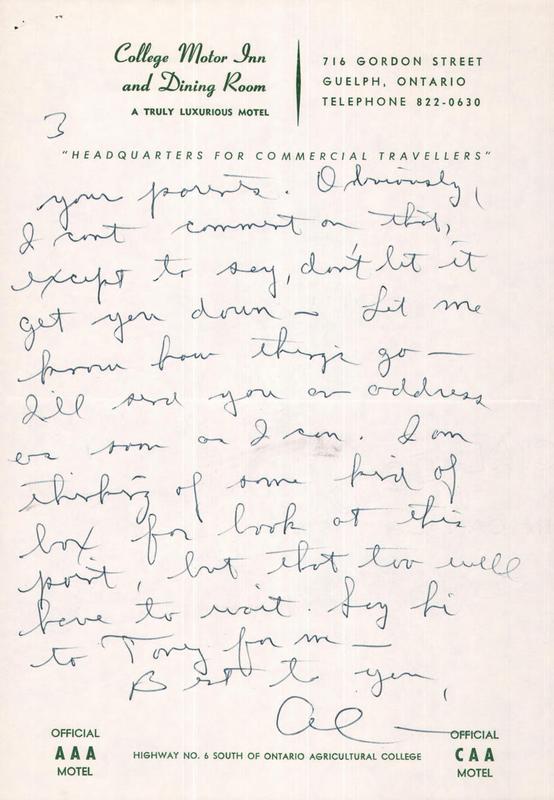 College Motor Inn
and Dining Room
A TRULY LUXURIOUS MOTEL
716 GORDON STREET
GUELPH, ONTARIO
TELEPHONE 822-0630
3
"HEADQUARTERS FOR COMMERCIAL TRAVELLERS"
your parents. Obviously,
I can't comment on that,
except to say, don't let it
get you down — Let me
know how things go —
I'll send you an address
as soon as I can. I am
thinking of some kind of
box for look at this
point, but that too will
have to wait. Say hi
to Tony for me —
Best to you,
Al —
OFFICIAL
AAA
MOTEL
HIGHWAY NO. 6 SOUTH OF ONTARIO AGRICULTURAL COLLEGE
OFFICIAL
CAA
MOTEL